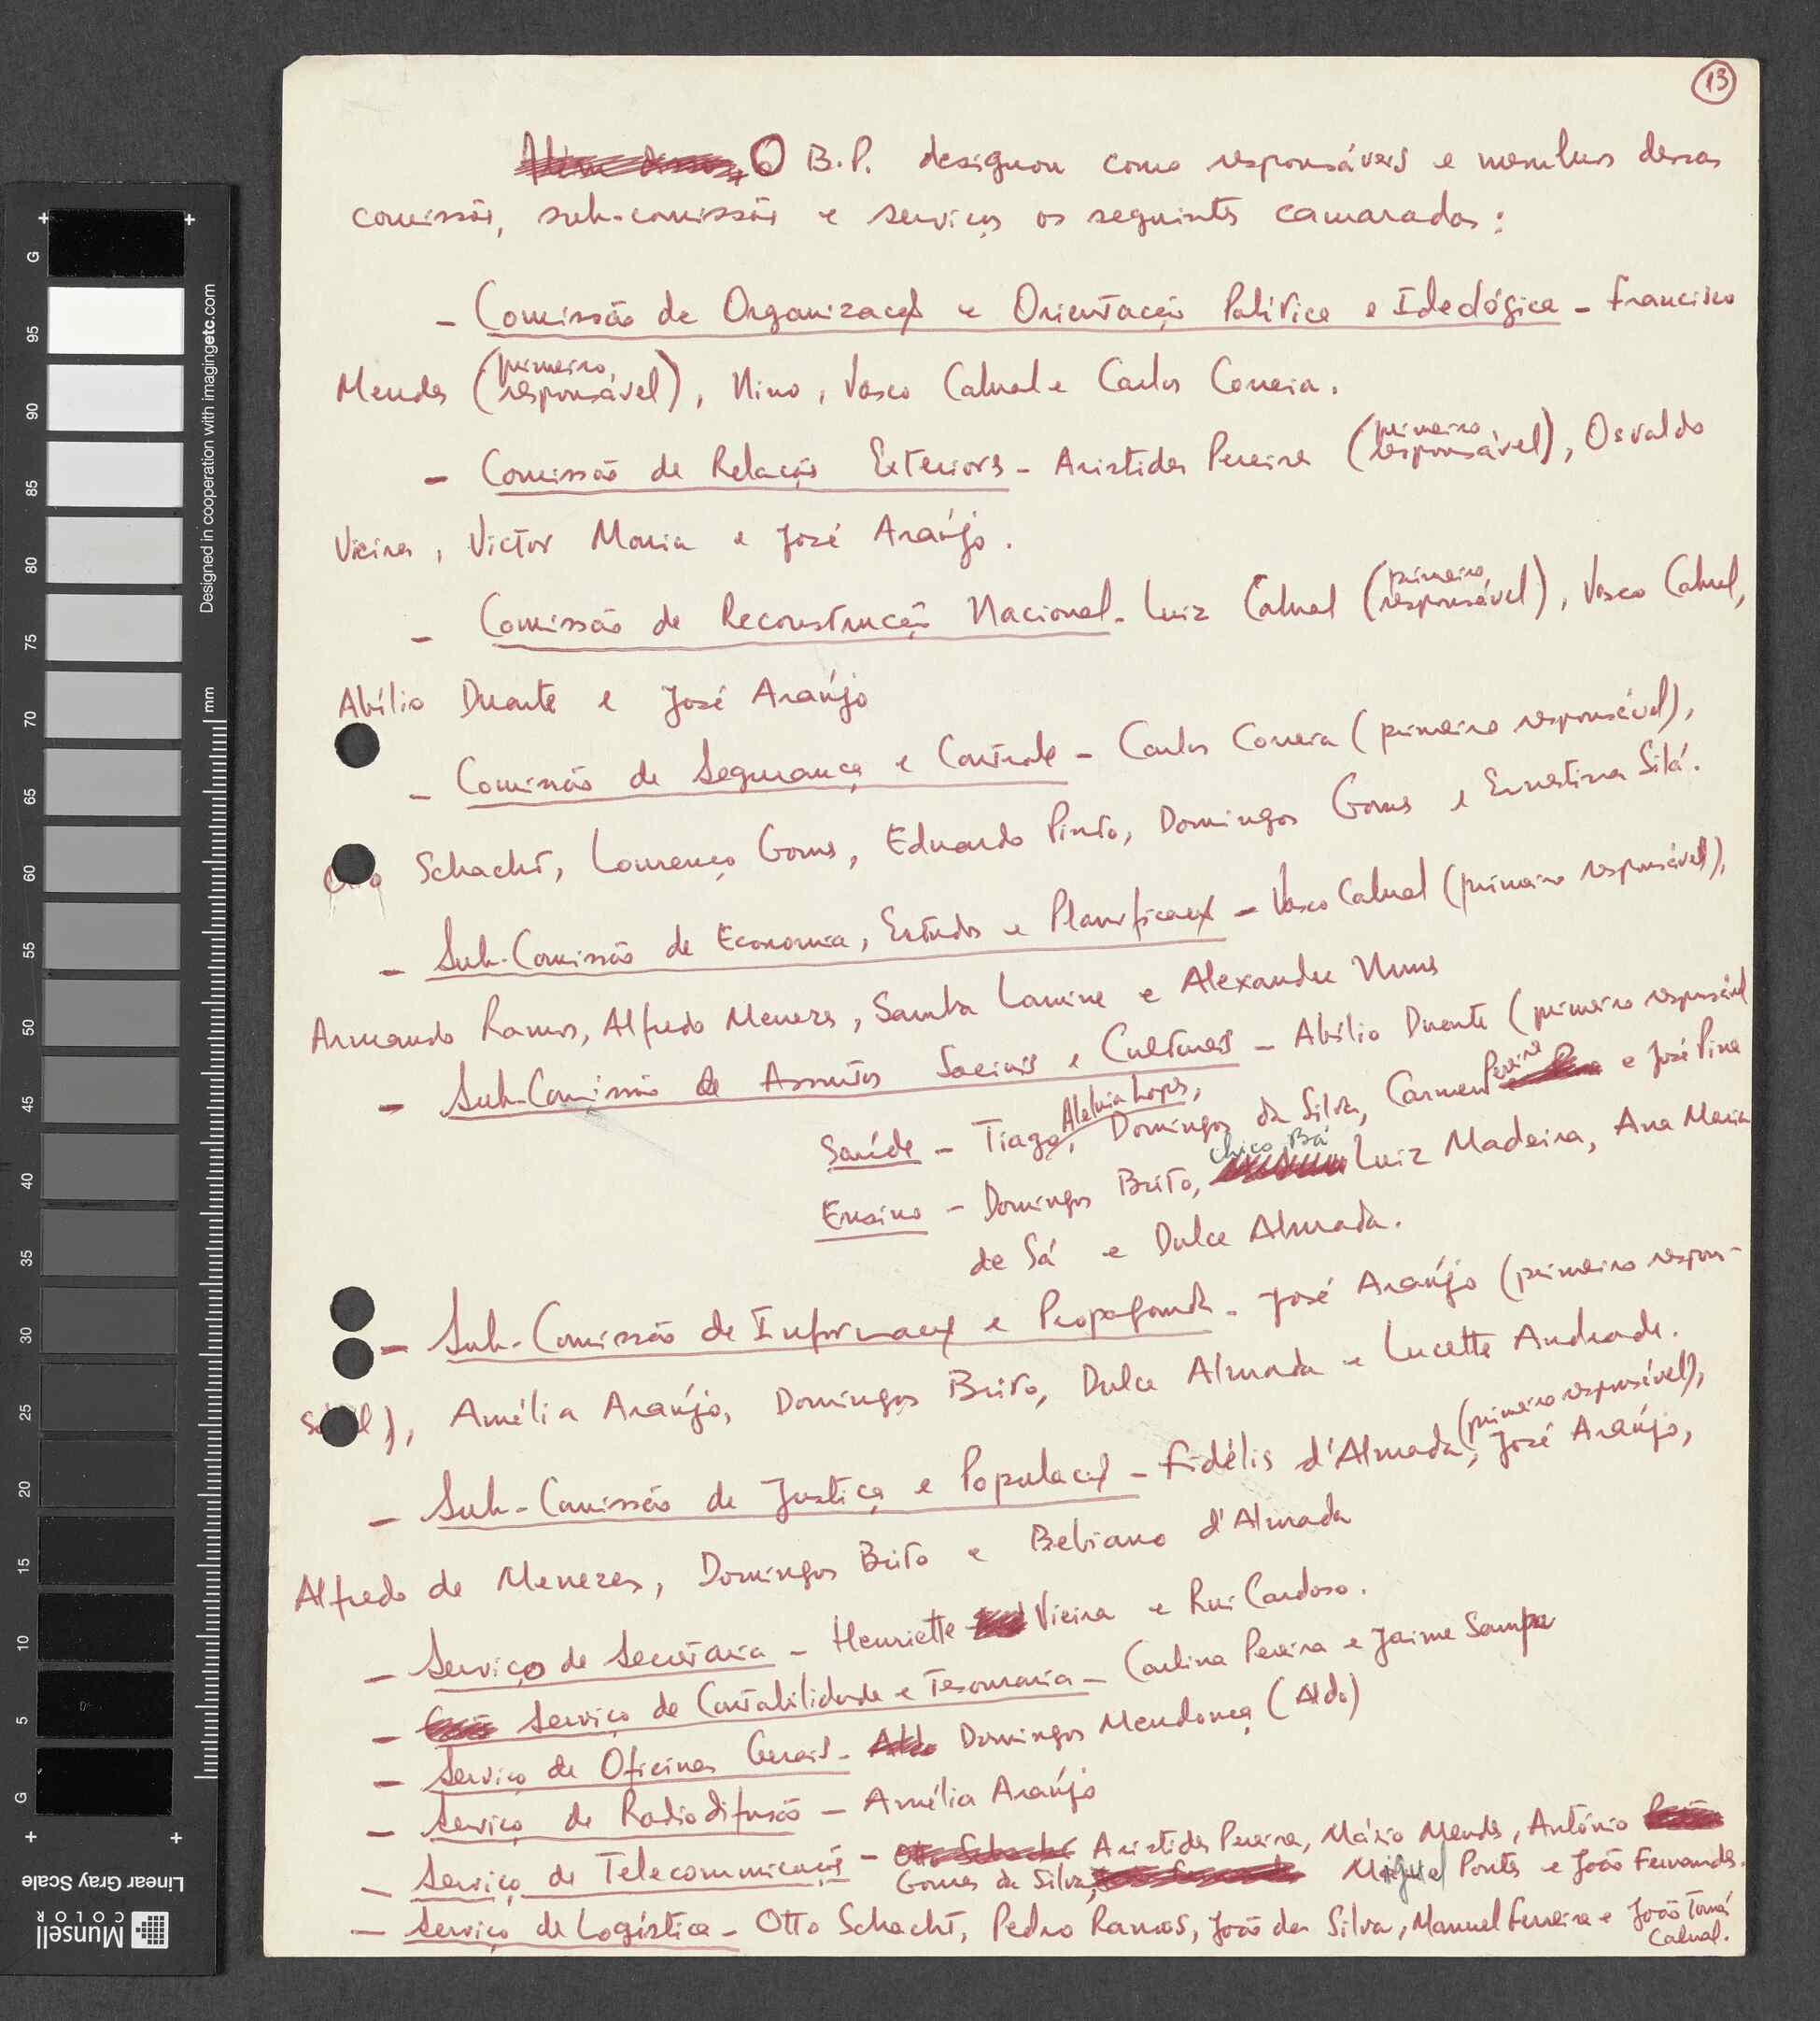 13
O B.P. designou como responsáveis e membros dessas
comissões, sub-comissões e serviços os seguintes camaradas:
- Comissão de Organização e Orientação Política e Ideológica - Francisco
Mendes (primeiro responsável), Nino, Vasco Cabral e Carlos Correia.
- Comissão de Relações Exteriores - Aristides Pereira (primeiro responsável), Osvaldo
Vieira, Victor Maria e José Araújo.
- Comissão de Reconstrução Nacional - Luiz Cabral (primeiro responsável), Vasco Cabral,
Abílio Duarte e José Araújo
- Comissão de Segurança e Controle - Carlos Correia (primeiro responsável),
Otto Schacht, Lourenço Gomes, Eduardo Pinto, Domingos Gomes e Ernestina Silá.
- Sub-Comissão de Economia, Estudos e Planificação - Vasco Cabral (primeiro responsável),
Armando Ramos, Alfredo Menezes, Samba Lamine e Alexandre Nunes
- Sub-Comissão de Assuntos Sociais e Culturais - Abílio Duarte (primeiro responsável
Saúde - Tiago, Aleluia Lopes, Domingos da Silva, Carmen Pereira e José Pina
Ensino - Domingos Brito, Chico Bá Luiz Madeira, Ana Maria
de Sá e Dulce Almada.
- Sub-Comissão de Informação e Propaganda - José Araújo (primeiro respon-
sável), Amélia Araújo, Domingos Brito, Dulce Almada e Lucette Andrade.
- Sub-Comissão de Justiça e População - Fidélis d'Almada (primeiro responsável), José Araújo,
Alfredo de Menezes, Domingos Brito e Bebiano d'Almada
- Serviço de Secretaria - Henriette Vieira e Rui Cardoso.
- Serviço de Contabilidade e Tesouraria - Carlina Pereira e Jaime Sampa
- Serviço de Oficinas Gerais - Aldo Domingos Mendonça (Aldo)
- Serviço de Radiodifusão - Amélia Araújo
- Serviço de Telecomunicações - Otto Schacht Aristides Pereira, Mário Mendes, António
Gomes da Silva, Miguel Pontes e João Fernandes.
- Serviço de Logística - Otto Schacht, Pedro Ramos, João da Silva, Manuel Ferreira e João Tomás
Cabral.
Designed in cooperation with imagingetc.com
mm
G 95 90 85 80 75 70 65 60 55 50 45 40 35 30 25 20 15 10 5 G
Linear Gray Scale
Munsell
COLOR